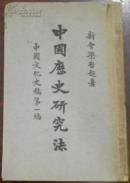 新會梁啓超著
中國歷史研究法
中國文化史稿第一編